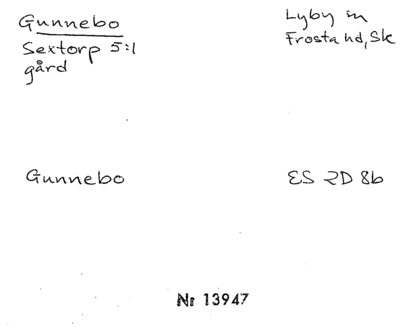 Gunnebo
Sextorp 5:1
gård
Lyby sn
Frosta hd, Sk
Gunnebo
ES 2D 8b
Nr 13947